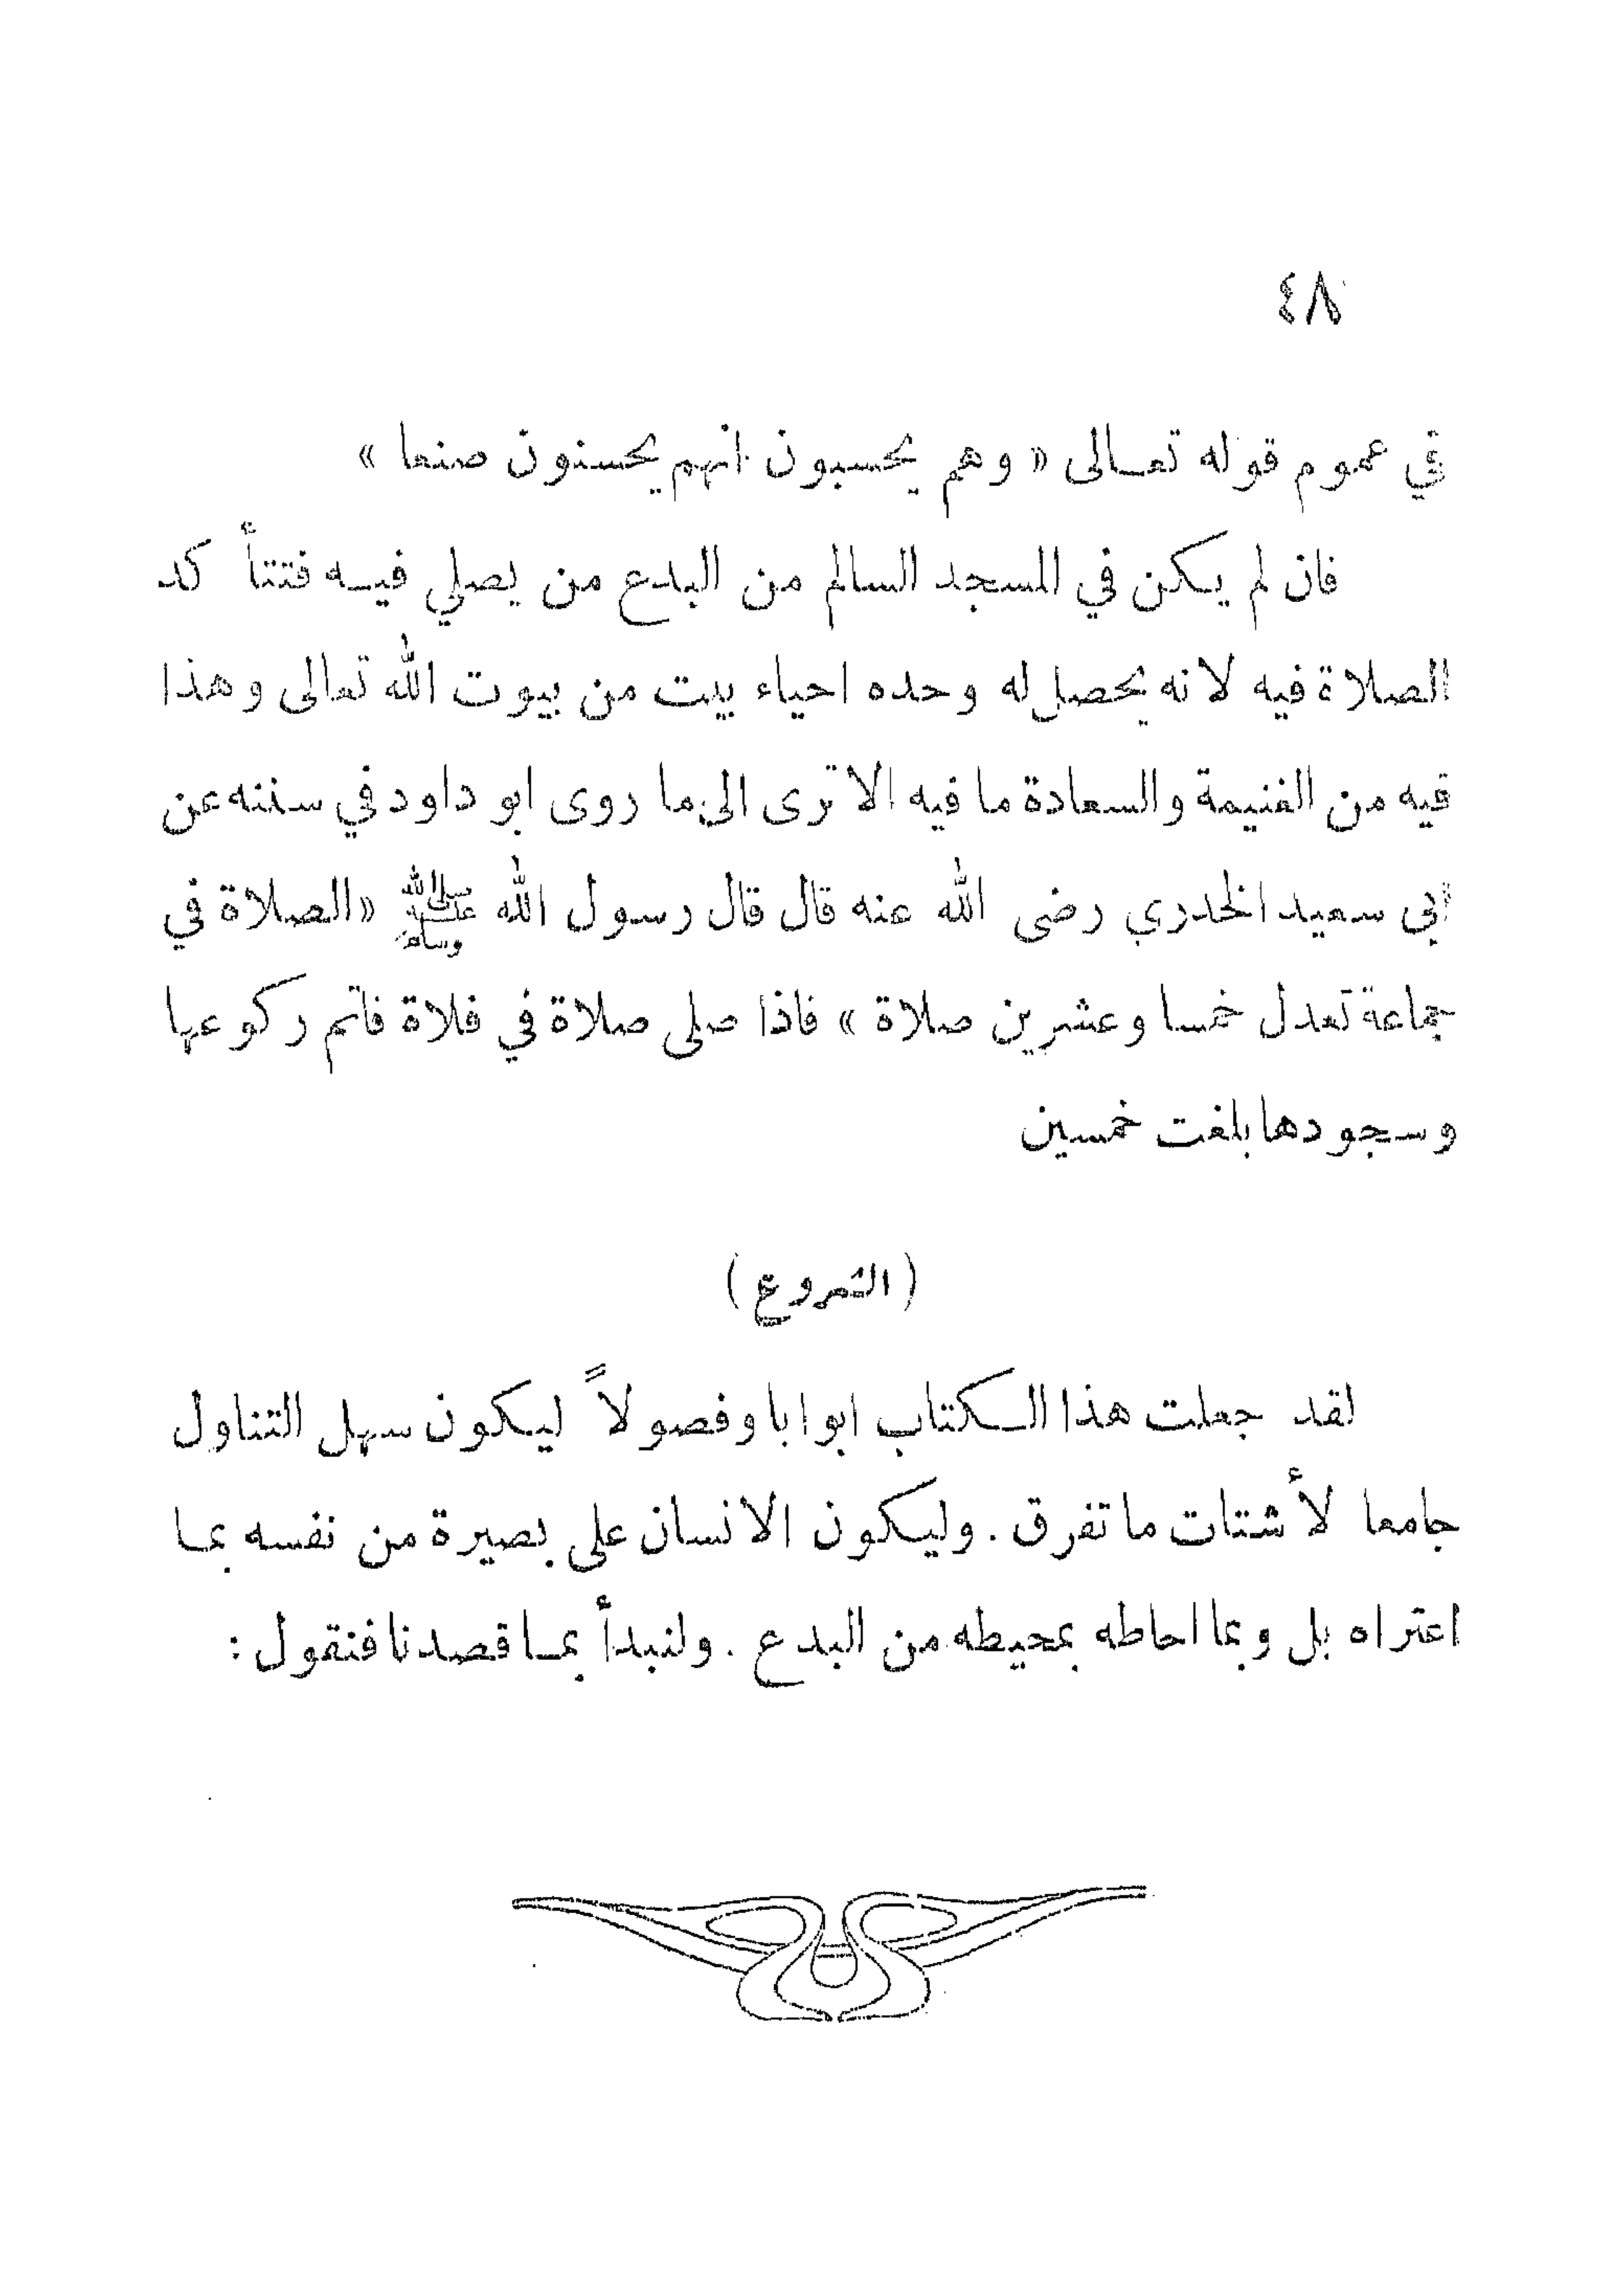 ٤٨
في عموم قوله تعالى « وهم يحسبون انهم يحسنون صنعا »
فان لم يكن في المسجد السالم من البدع من يصلي فيه فتتأكد
الصلاة فيه لانه يحصل له وحده احياء بيت من بيوت الله تعالى وهذا
فيه من الغنيمة والسعادة ما فيه الا ترى الى ما روى ابو داود في سننه عن
أبي سعيد الخدري رضى الله عنه قال قال رسول الله ﷺ «الصلاة في
جماعة تعدل خمسا وعشرين صلاة » فاذا صلى صلاة في فلاة فاتم ركوعها
وسجودها بلغت خمسين
( الشروع )
لقد جعلت هذا الكتاب ابوابا وفصولاً ليكون سهل التناول
جامعا لأشتات ما تفرق . وليكون الانسان على بصيرة من نفسه بما
اعتراه بل وبما احاطه بمحيطه من البدع . ولنبدأ بما قصدنا فنقول :